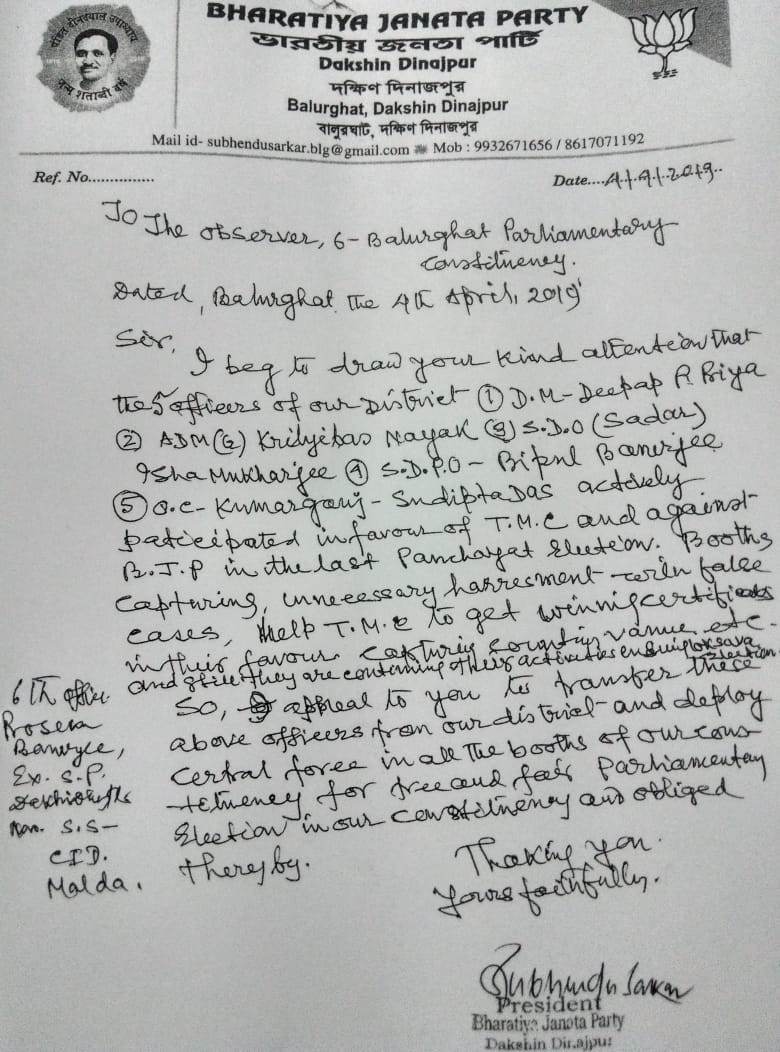 पंडित दीनदयाल उपाध्याय
जन्म शताब्दी वर्ष
BHARATIYA JANATA PARTY
ভারতীয় জনতা পার্টি
Dakshin Dinajpur
দক্ষিণ দিনাজপুর
Balurghat, Dakshin Dinajpur
বালুরঘাট, দক্ষিণ দিনাজপুর
Mail id- subhendusarkar.blg@gmail.com Mob : 9932671656 / 8617071192
Ref. No............... Date....4.4.2019..
To The observer, 6-Balurghat Parliamentary
Constituency.
Dated, Balurghat The 4th April, 2019
Sir,
I beg to draw your kind attention that
the 5 officers of our District ① D.M-Deepap P. Priya
② ADM(G) Krityibas Nayak ③ S.D.O (Sadar)
Isha Mukharjee ④ S.D.P.O - Bipul Banerjee
⑤ O.C- Kumarganj - Sudipta Das actively
paticipated in favour of T.M.C and against
B.J.P in the last Panchayat Election. Booths
capturing, unnecessary harresment with false
cases, help T.M.C to get winnig certificates
in their favour capturig counting vanue etc.
and still they are contening their activities loksava Election
So, I appeal to you to transfer these
above officers from our district and deploy
Central force in all the booths of our cons-
tetuency for free and fair Parliamentary
Election in our constituency and obliged
thereby.
6th officer
Banerjee,
Ex. S.P.
S.S-
CID.
Malda.
Thaking you.
Yours faithfully.
Subhendu Sarkar
President
Bharatiya Janata Party
Dakshin Dinajpur